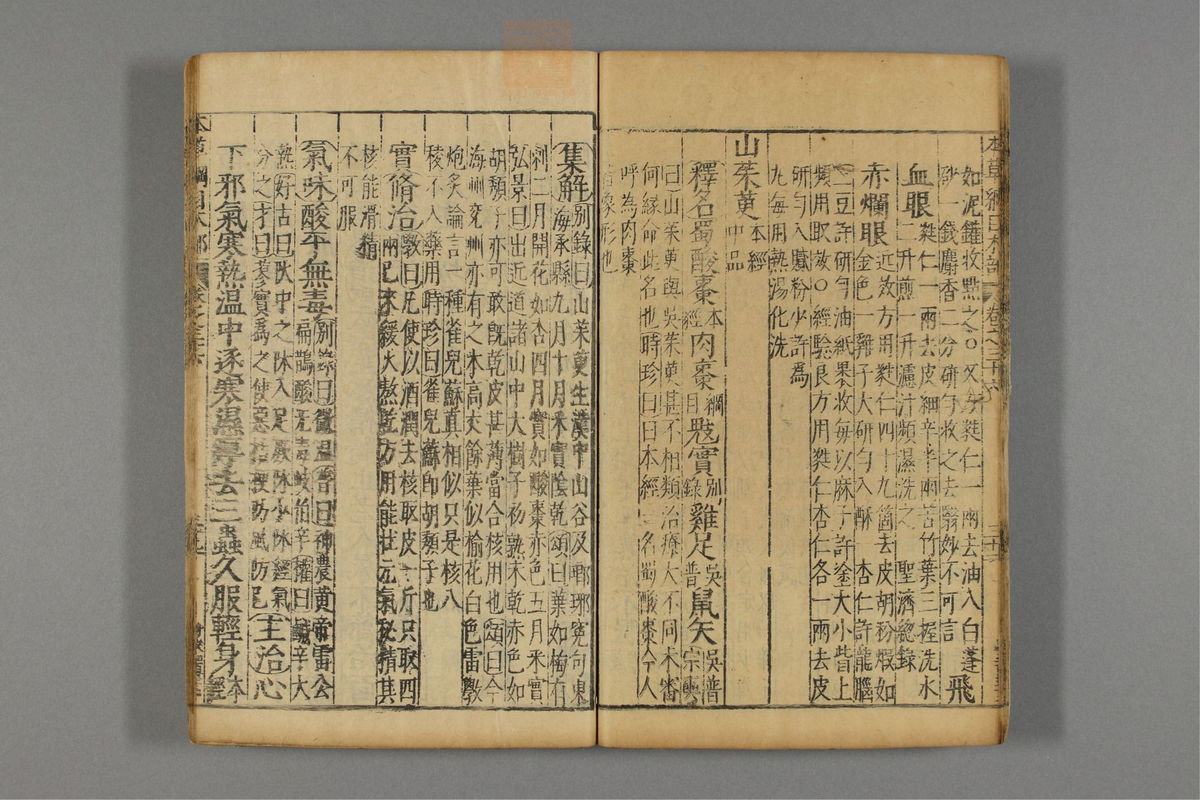 本草綱目木部 卷之三十六
如泥鑵收點之○又方蕤仁一兩去油入白蓬
砂一錢麝香二分研勻收之去翳妙不可言 飛
血眼蕤仁一兩去皮細辛半兩苦竹葉三握洗水
二升煎一升濾汁頻濕洗之 聖濟總錄
赤爛眼近效方用蕤仁四十九箇去皮胡粉煆如
金色一雞子大研勻入酥一杏仁許龍腦
二豆許研勻油紙裹收每以麻子許塗大小眥上
頻用取效○經驗良方用蕤仁杏仁各一兩去皮
研勻入膩粉少許爲
丸每用熱湯化洗
山茱萸本經中品
釋名蜀酸棗本經肉棗綱目鬾實別錄雞足吳普鼠矢吳普宗奭
曰山茱萸與吳茱萸甚不相類治療大不同未審
何緣命此名也時珍曰本經一名蜀酸棗今人
呼為肉棗
皆象形也
集解別錄曰山茱萸生漢中山谷及瑯琊冤句東
海承縣九月十月采實陰乾頌曰葉如梅有
刺二月開花如杏四月實如酸棗赤色五月采實
弘景曰出近道諸山中大樹子初熟未乾赤色如
胡頹子亦可啖旣乾皮甚薄當合核用也頌曰今
海州兗州亦有之木高丈餘葉似榆花白色雷斅
炮炙論言一種雀兒蘇真相似只是核八
稜不入藥用時珍曰雀兒蘇即胡頹子也
實脩治斅曰凡使以酒潤去核取皮一斤只取四
兩已來緩火熬乾方用能壯元氣秘精其
核能滑精
不可服
氣味酸平無毒別錄曰微溫普曰神農黃帝雷公
扁鵲酸无毒岐伯辛權曰鹹辛大
熱好古曰陽中之陰入足厥陰少陰經氣
分之才曰蓼實爲之使惡桔梗防風防己主治心
下邪氣寒熱温中逐寒濕痺去三蟲久服輕身本經